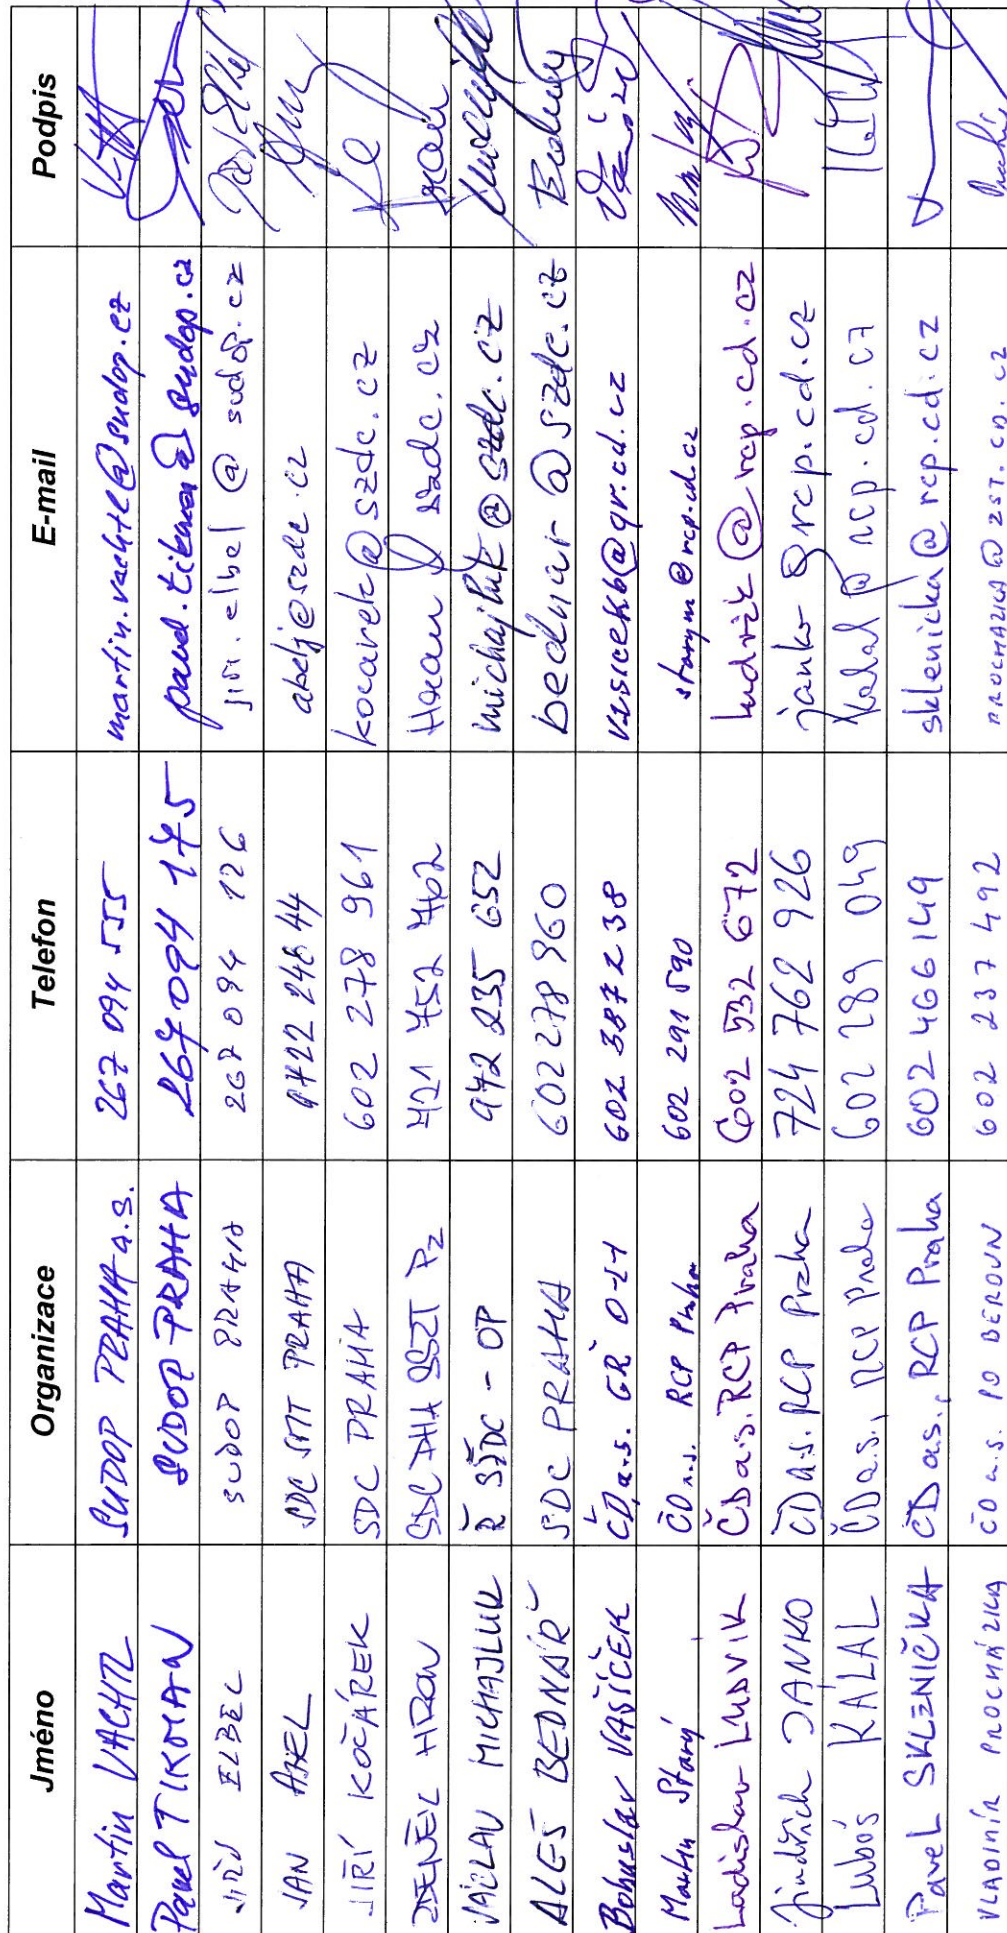 Jméno Organizace Telefon E-mail Podpis
Martin VACHTL SUDOP PRAHA a.s. 267 094 555 martin.vachtl@sudop.cz
Pavel TIKMAN SUDOP PRAHA 267 094 175 pavel.tikman@sudop.cz
JIŘÍ ELBEL SUDOP PRAHA 267 094 126 jiri.elbel @ sudop.cz
JAN ABEL SDC PRAHA abelj@szdc.cz
JIŘÍ KOČÁREK SDC PRAHA 602 278 961 kocarek@szdc.cz
ZDENĚK HRON SDC PHA SSZT P2
VÁCLAV MICHAJLUK Ř SŽDC - OP 972 235 652 michajluk@szdc.cz
ALEŠ BEDNÁŘ SDC PRAHA 602 278 960 bednar@szdc.cz
Bohuslav VAŠÍČEK ČD, a.s. GŘ O-21 602 387 238 vasicekb@gr.cd.cz
Martin Starý ČD a.s. RCP Praha 602 291 590 starym@rcp.cd.cz
Ladislav LUDVÍK ČD a.s. RCP Praha 602 532 672 ludvik@rcp.cd.cz
Jindřich JANKO ČD a.s. RCP Praha 724 762 926 janko@rcp.cd.cz
Luboš KALAL ČD a.s., RCP Praha 602 289 049 kalal@rcp.cd.cz
Pavel SKLENIČKA ČD a.s., RCP Praha 602 466 149 sklenicka@rcp.cd.cz
VLADIMÍR PROCHÁZKA ČD a.s. PO BEROUN 602 237 492 PROCHAZKA@ZST.CD.CZ